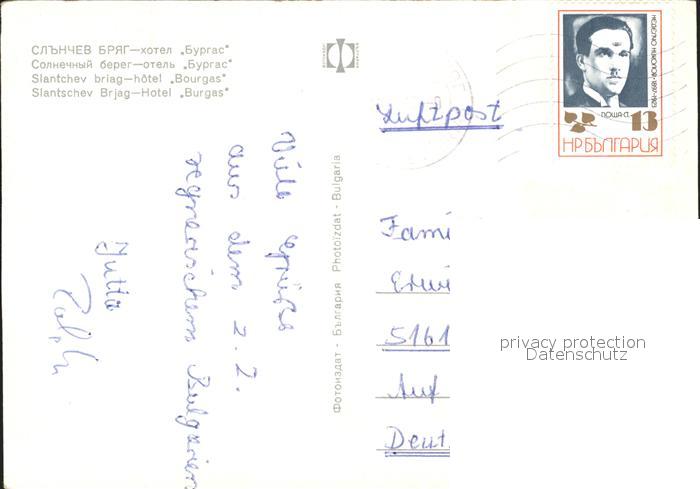 СЛЪНЧЕВ БРЯГ—хотел „Бургас“
Солнечный берег—отель „Бургас“
Slantchev briag—hôtel „Bourgas“
Slantschev Brjag—Hotel „Burgas“
ПОЩА СТ. 13
НР БЪЛГАРИЯ
Luftpost
Viele Grüße
aus dem z. Z.
regnerischem Bulgarien
Jutta
Ralph
Фотоиздат - България Photoizdat - Bulgaria
Fami
Erwi
5161
Auf
Deut
privacy protection
Datenschutz